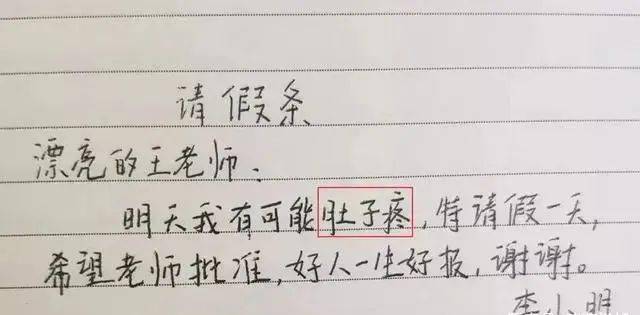 请假条
漂亮的王老师:
明天我有可能肚子疼,特请假一天,
希望老师批准,好人一生好报,谢谢。
李小明